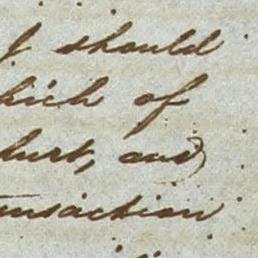 I should
which of
hurt, and
transaction